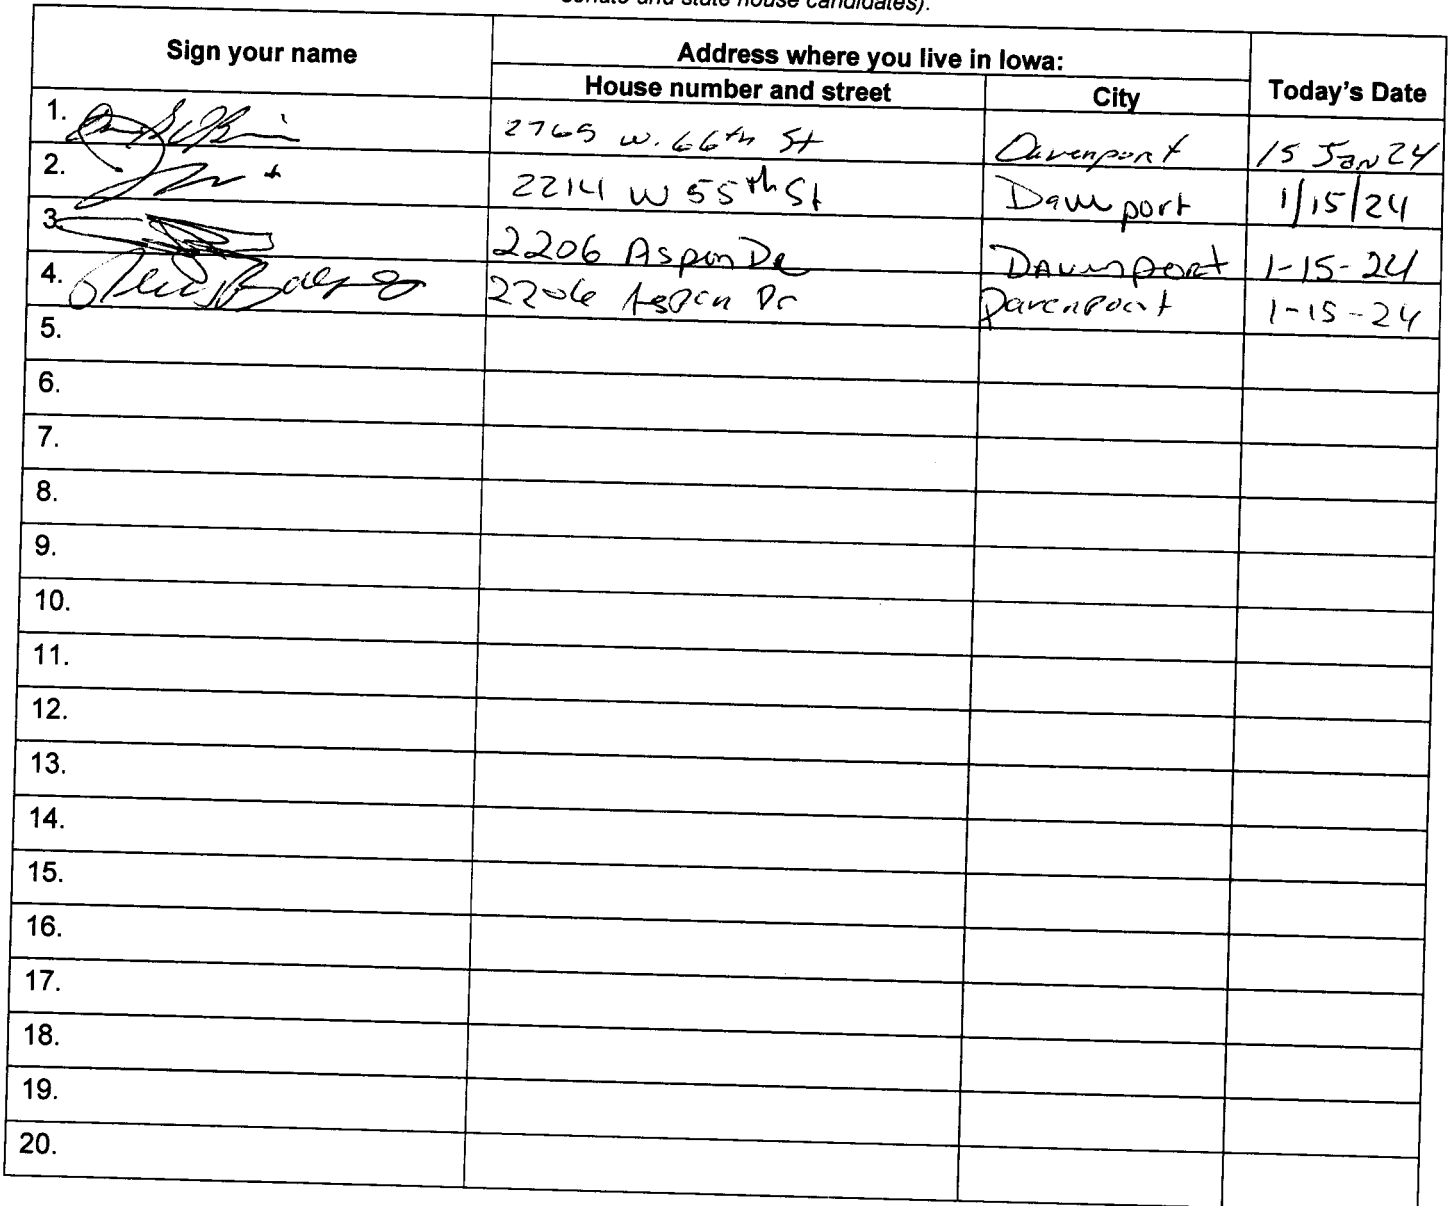 senate and state house candidates).
Sign your name
Address where you live in Iowa:
House number and street
City
Today's Date
1. 2765 W. 66th St Davenport 15 Jan 24
2. 2214 W 55th St Davenport 1/15/24
3. 2206 Aspen Dr Davenport 1-15-24
4. 2206 Aspen Dr Davenport 1-15-24
5.
6.
7.
8.
9.
10.
11.
12.
13.
14.
15.
16.
17.
18.
19.
20.